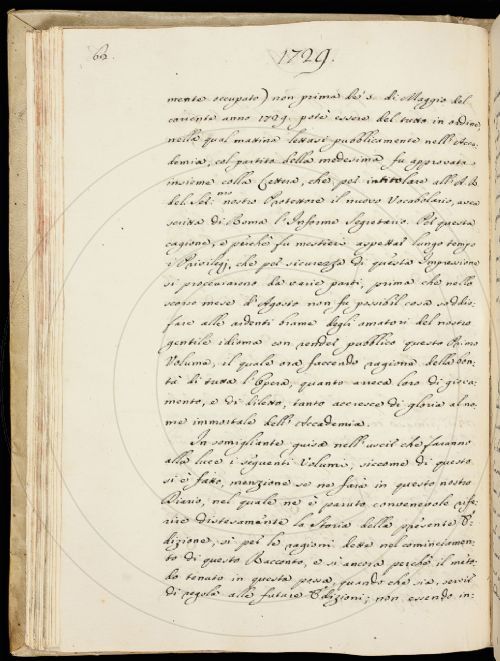 62.
1729.
mente occupato) non prima de' 5. di Maggio del
corrente anno 1729. potè essere del tutto in ordine,
nella qual mattina lettasi pubblicamente nell' Acca-
demia, col partito della medesima fu approvata
insieme colla Lettera, che, per intitolare all' A. R.
del Ser:mo nostro Protettore il nuovo Vocabolario, avea
scritta di Roma l' Informe Segretario. Per questa
cagione, e perchè fu mestiero aspettar lungo tempo
i Privilegj, che per sicurezza di questa Impressione
si procurarono da varie parti, prima che nello
scorso mese d' Agosto non fu possibil cosa soddis-
fare alle ardenti brame degli amatori del nostro
gentile idioma con render pubblico questo Primo
Volume, il quale ora faccendo ragione della bon-
tà di tutta l' Opera, quanto arreca loro di giova-
mento, e di diletto, tanto accresce di gloria al no-
me immortale dell' Accademia.
In somigliante guisa nell' uscir che faranno
alla luce i seguenti Volumi, siccome di questo
si è fatto, menzione se ne farà in questo nostro
Diario, nel quale ne è paruto convenevole rife-
rire distesamente la Storia della presente E-
dizione, sì per le ragioni dette nel cominciamen-
to di questo Racconto, e sì ancora perchè il meto-
do tenuto in questa possa, quando che sia, servir
di regola alle future Edizioni; non essendo in-